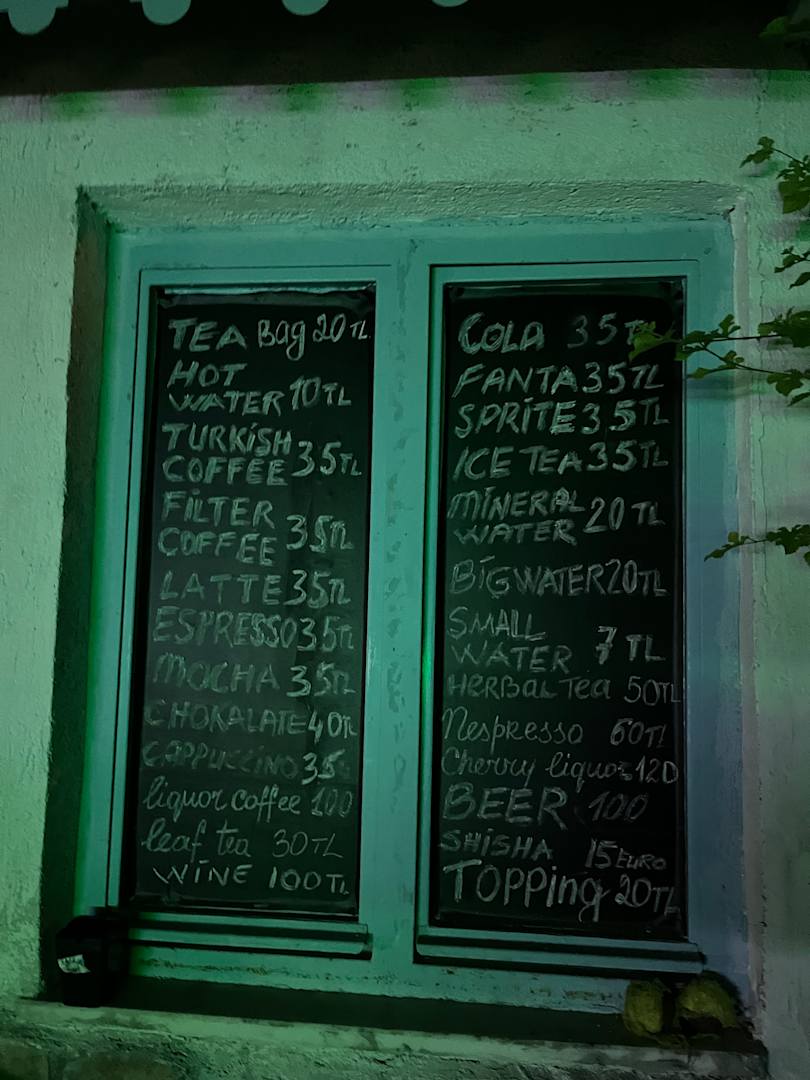 TEA Bag 20 TL
HOT
WATER 10 TL
TURKİSH
COFFEE 35 TL
FİLTER
COFFEE 35 TL
LATTE 35 TL
ESPRESSO 35 TL
MOCHA 35 TL
CHOKALATE 40 TL
CAPPUCCINO 35
liquor coffee 100
leaf tea 30 TL
WİNE 100 TL
COLA 35 TL
FANTA 35 TL
SPRİTE 35 TL
ICE TEA 35 TL
MİNERAL
WATER 20 TL
BİG WATER 20 TL
SMALL
WATER 7 TL
HERBAL Tea 50 TL
Nespresso 60 TL
Cherry liquor 120
BEER 100
SHİSHA 15 EURO
TOPPing 20 TL